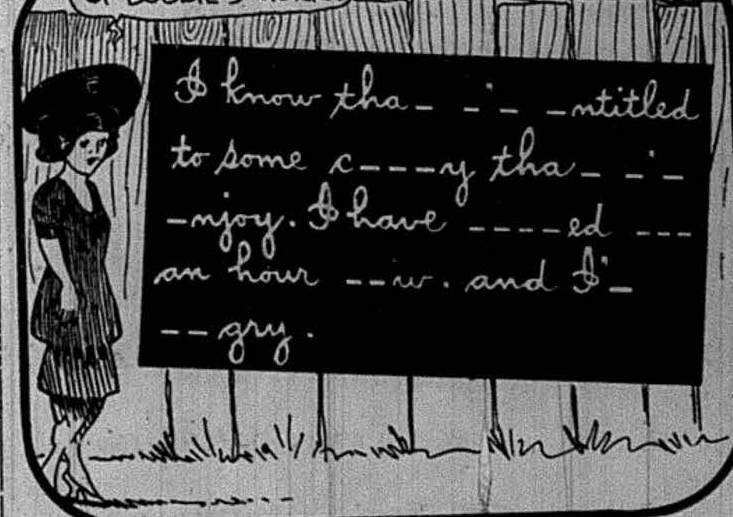 I know tha_ _'_ _ntitled
to some c____y tha_ _'_
_njoy. I have ____ed ___
an hour __w. and I'_
__gry.